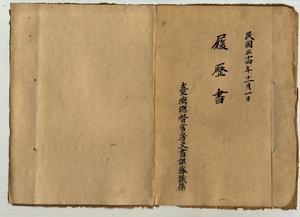 民國三十四年十一月一日
履歷書
臺灣總督官房文書課審議係